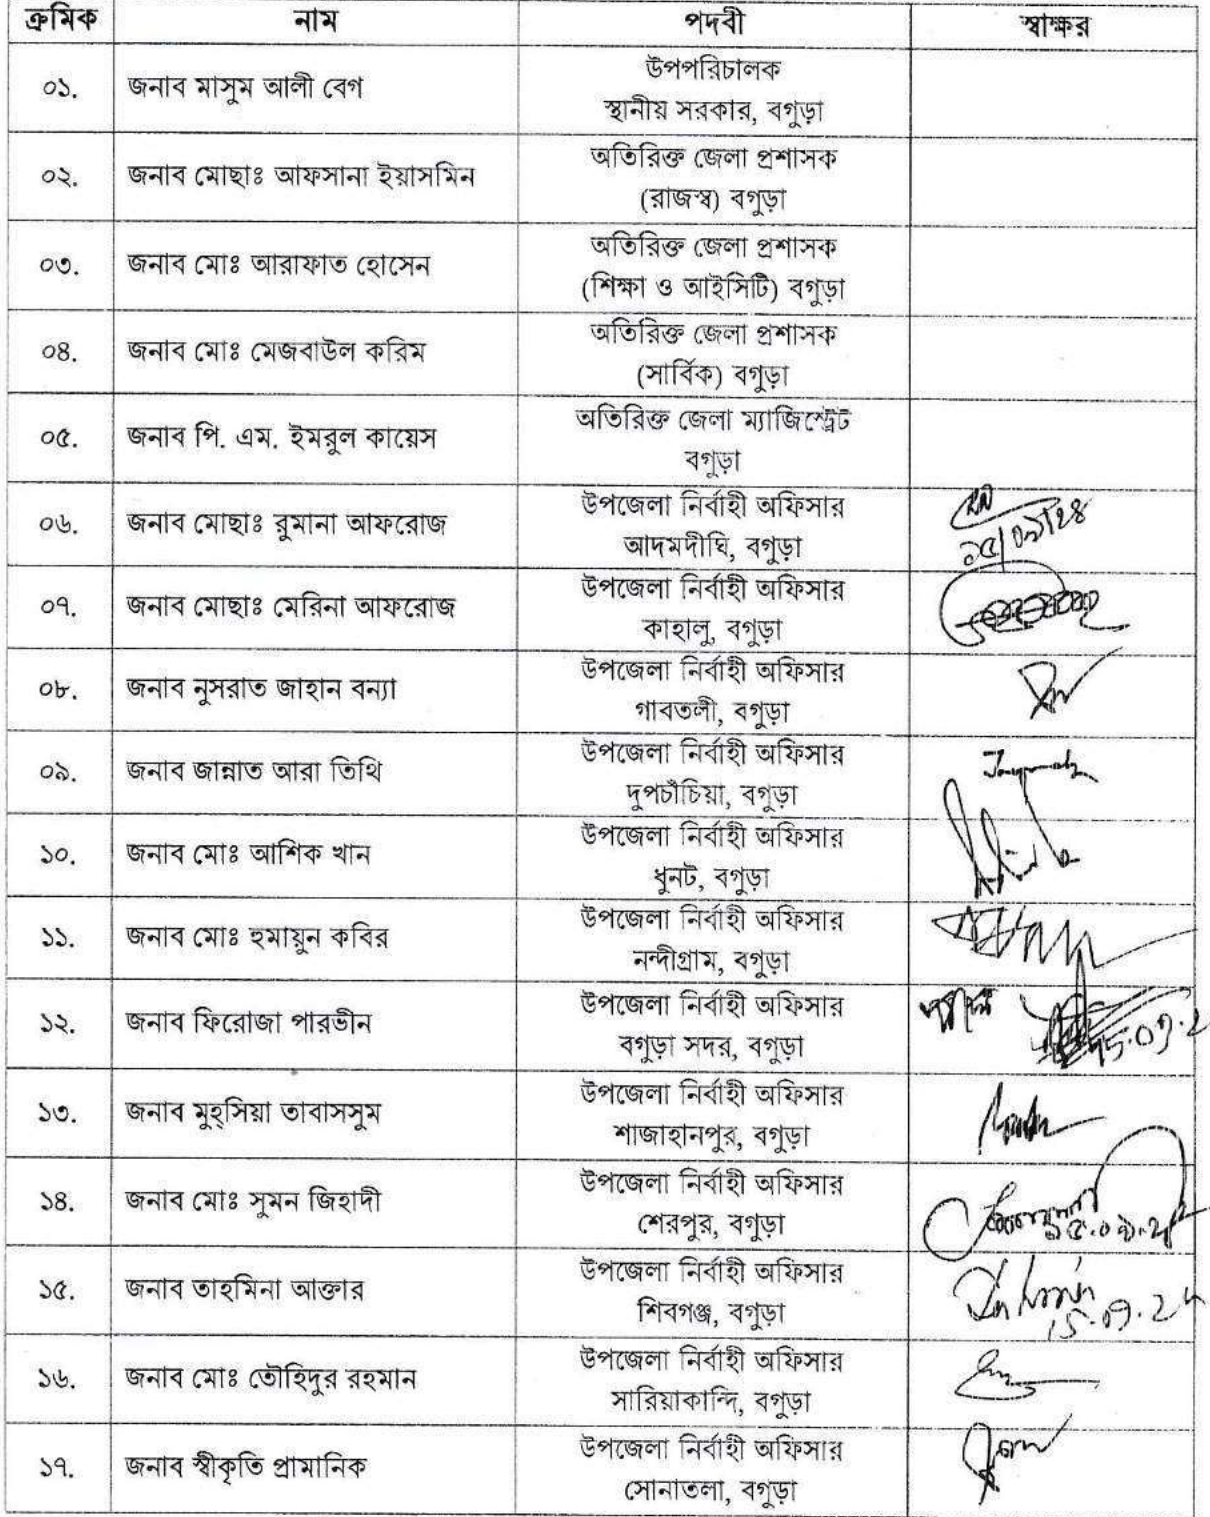 ক্রমিক নাম পদবী স্বাক্ষর
০১. জনাব মাসুম আলী বেগ উপপরিচালক
স্থানীয় সরকার, বগুড়া
০২. জনাব মোছাঃ আফসানা ইয়াসমিন অতিরিক্ত জেলা প্রশাসক
(রাজস্ব) বগুড়া
০৩. জনাব মোঃ আরাফাত হোসেন অতিরিক্ত জেলা প্রশাসক
(শিক্ষা ও আইসিটি) বগুড়া
০৪. জনাব মোঃ মেজবাউল করিম অতিরিক্ত জেলা প্রশাসক
(সার্বিক) বগুড়া
০৫. জনাব পি. এম. ইমরুল কায়েস অতিরিক্ত জেলা ম্যাজিস্ট্রেট
বগুড়া
০৬. জনাব মোছাঃ রুমানা আফরোজ উপজেলা নির্বাহী অফিসার
আদমদীঘি, বগুড়া ১৫/০৯/২৪
০৭. জনাব মোছাঃ মেরিনা আফরোজ উপজেলা নির্বাহী অফিসার
কাহালু, বগুড়া
০৮. জনাব নুসরাত জাহান বন্যা উপজেলা নির্বাহী অফিসার
গাবতলী, বগুড়া
০৯. জনাব জান্নাত আরা তিথি উপজেলা নির্বাহী অফিসার
দুপচাঁচিয়া, বগুড়া
১০. জনাব মোঃ আশিক খান উপজেলা নির্বাহী অফিসার
ধুনট, বগুড়া
১১. জনাব মোঃ হুমায়ুন কবির উপজেলা নির্বাহী অফিসার
নন্দীগ্রাম, বগুড়া
১২. জনাব ফিরোজা পারভীন উপজেলা নির্বাহী অফিসার
বগুড়া সদর, বগুড়া 15.09.2
১৩. জনাব মুহ্সিয়া তাবাসসুম উপজেলা নির্বাহী অফিসার
শাজাহানপুর, বগুড়া
১৪. জনাব মোঃ সুমন জিহাদী উপজেলা নির্বাহী অফিসার
শেরপুর, বগুড়া ১৫.০৯.২৪
১৫. জনাব তাহমিনা আক্তার উপজেলা নির্বাহী অফিসার
শিবগঞ্জ, বগুড়া 15.09.24
১৬. জনাব মোঃ তৌহিদুর রহমান উপজেলা নির্বাহী অফিসার
সারিয়াকান্দি, বগুড়া
১৭. জনাব স্বীকৃতি প্রামানিক উপজেলা নির্বাহী অফিসার
সোনাতলা, বগুড়া